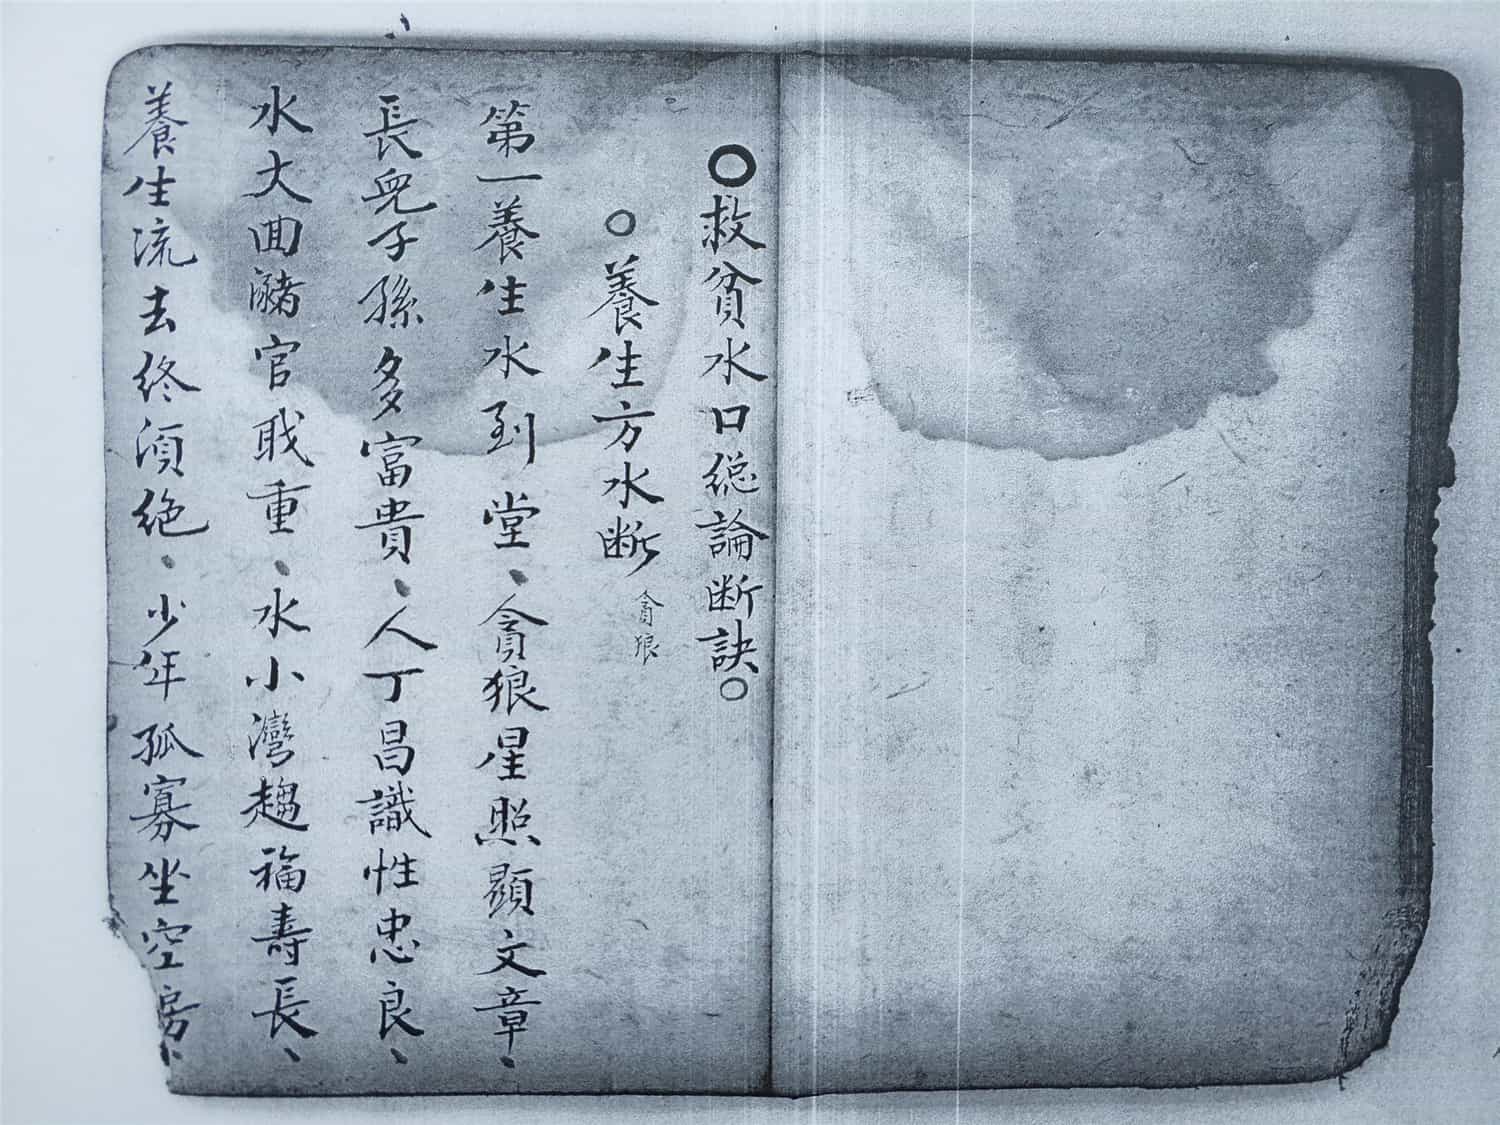 〇救貧水口総論断訣〇
〇養生方水断 貪狼
第一養生水到堂、貪狼星照顯文章、
長児子孫多富貴、人丁昌識性忠良、
水大曲潴官戢重、水小灣趨福壽長、
養生流去終須絶、少年孤寡坐空房、